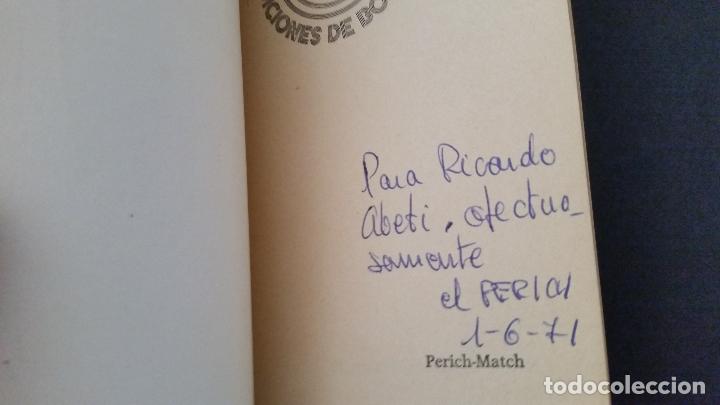 CIONES DE BO
Para Ricardo
Abeti, afectuo_
samente
el PERICH
1-6-71
Perich-Match
todocoleccion